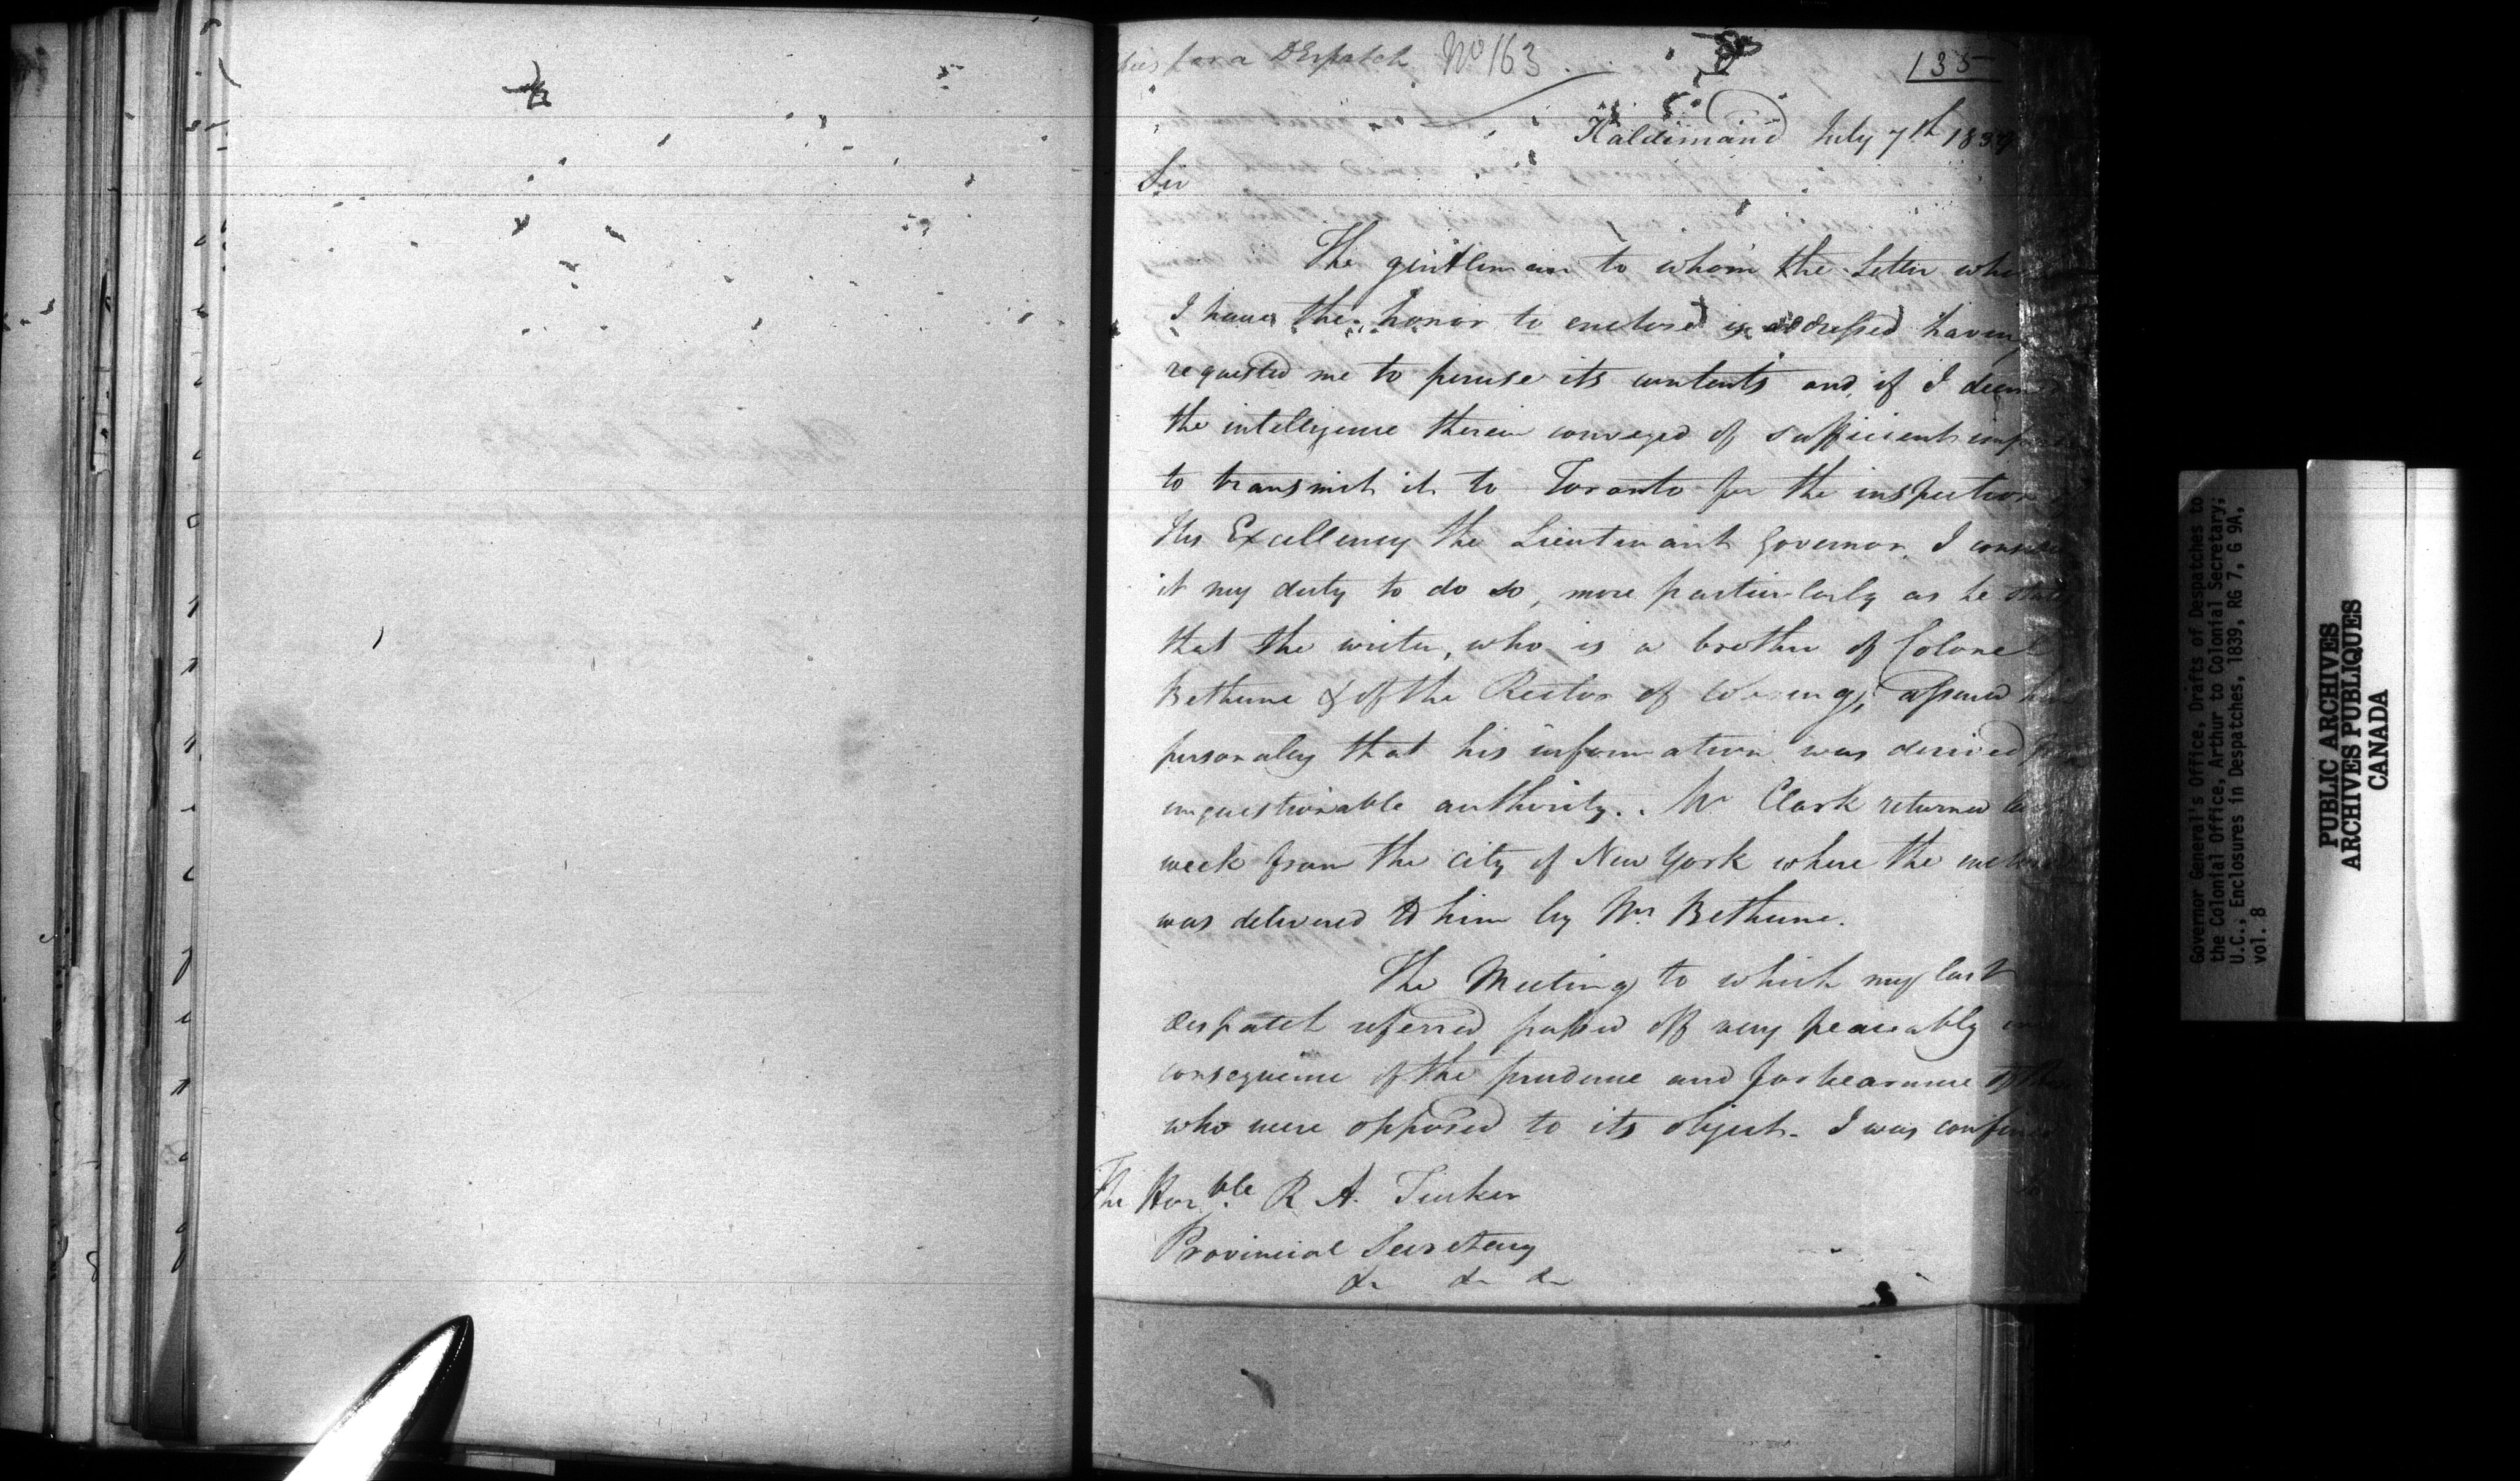 for a Despatch No 163
135
Haldimand July 7th 1839
Sir
The gentleman to whom the Letter
I have the honor to enclose is addressed having
requested me to peruse its contents and, if I
the intelligence therein conveyed of sufficient
to transmit it to Toronto for the inspection of
His Excellency the Lieutenant Governor, I
it my duty to do so, more particularly as he states
that the writer, who is a brother of Colonel
Bethune & of the Rector of Cobourg, assured him
personaly that his information was derived from
unquestionable authority. Mr Clark returned last
week from the city of New York where the
was delivered to him by Mr Bethune.
The Meeting to which my last
despatch referred passed off very peaceably in
consequence of the prudence and forbearance of
who were opposed to its object. I was confined
The Honble R A. Tucker
Provincial Secretary
&c &c &c
Governor General's Office, Drafts of Despatches to
the Colonial Office, Arthur to Colonial Secretary;
U.C., Enclosures in Despatches, 1839, RG 7, G 9A,
vol. 8
PUBLIC ARCHIVES
ARCHIVES PUBLIQUES
CANADA